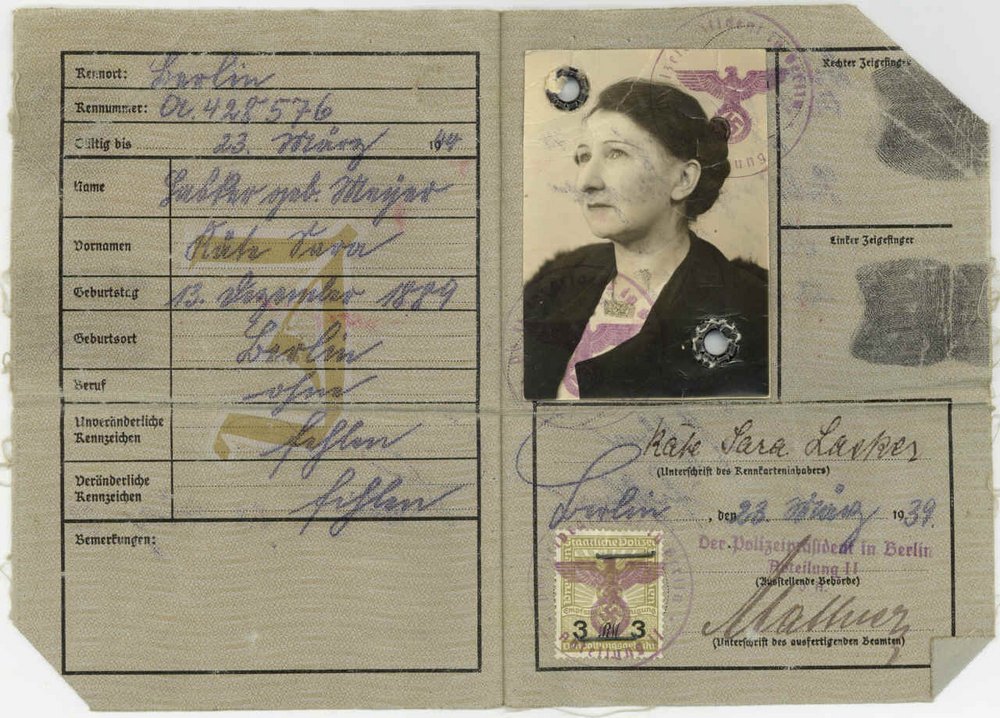 Kennort: Berlin
Kennummer: A.428576
Gültig bis 23. März 1944
Name Lasker geb. Meyer
Vornamen Käte Sara
Geburtstag 13. Dezember 1889
Geburtsort Berlin
Beruf ohne
Unveränderliche
Kennzeichen fehlen
Veränderliche
Kennzeichen fehlen
Bemerkungen:
J
Rechter Zeigefinger
Linker Zeigefinger
Käte Sara Lasker
(Unterschrift des Kennkarteninhabers)
Berlin, den 23. März 1939
Der Polizeipräsident in Berlin
Abteilung II
(Ausstellende Behörde)
(Unterschrift des ausfertigenden Beamten)
Staatliche Polizei
3 RM 3